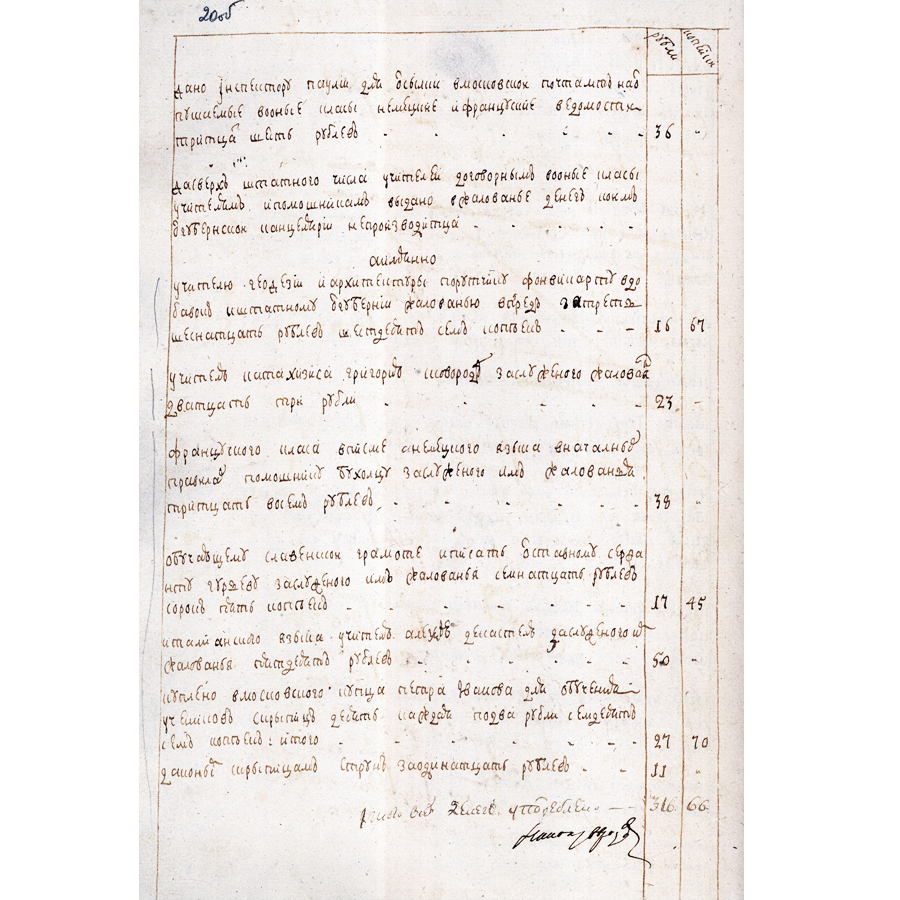 20об
рубли копѣики
дано Інспектору паулін для осылки вмосковскои почтамтъ наб
пущаемые воные класы немецкие ифранцуские ведомости
тритцат шесть рублевъ - - - - - 36 -
дасверхъ штатного числа учителеи договорнымъ воные класы
учителямъ ипомошникамъ выдано вжалованье денегъ коимъ
вгубернскои канцелярїи непроизводитца - - - -
аимянно
учителю геодезїи иархитектуры порутчику фонвинарту вдо
бавокъ кштатному вгубернїи жалованью впредь затреть
шеснатцать рублевъ шестдесятъ семъ копѣекъ - - - 16 67
учителю катахизиса григорию сковороде заслуженого жалован
дватцать три рубли - - - - - 23 -
француского класа вписме анемецкого языка вначалные
правила помошнику бухолцу заслуженого имъ жалованья
тритцать восемъ рублевъ - - - - - 38 -
обучающему славенскои грамоте иписать отставному сержа
нту гуряеву заслуженого имъ жалованья семнатцать рублевъ
сорокъ пять копѣекъ - - - - - 17 45
италианского языка учителю заслуженого
жалованья пятдесятъ рублевъ - - - - 50 -
куплено вмосковского купца петра Иванова для обучения
учениковъ скрыпицъ десять кажда подва рубли семдесятъ
семъ копѣекъ итого - - - - - 27 70
коным скрыпицамъ струнъ заодинатцать рублевъ - - 11 -
итого всѣхъ денегъ употреблено - 316 66